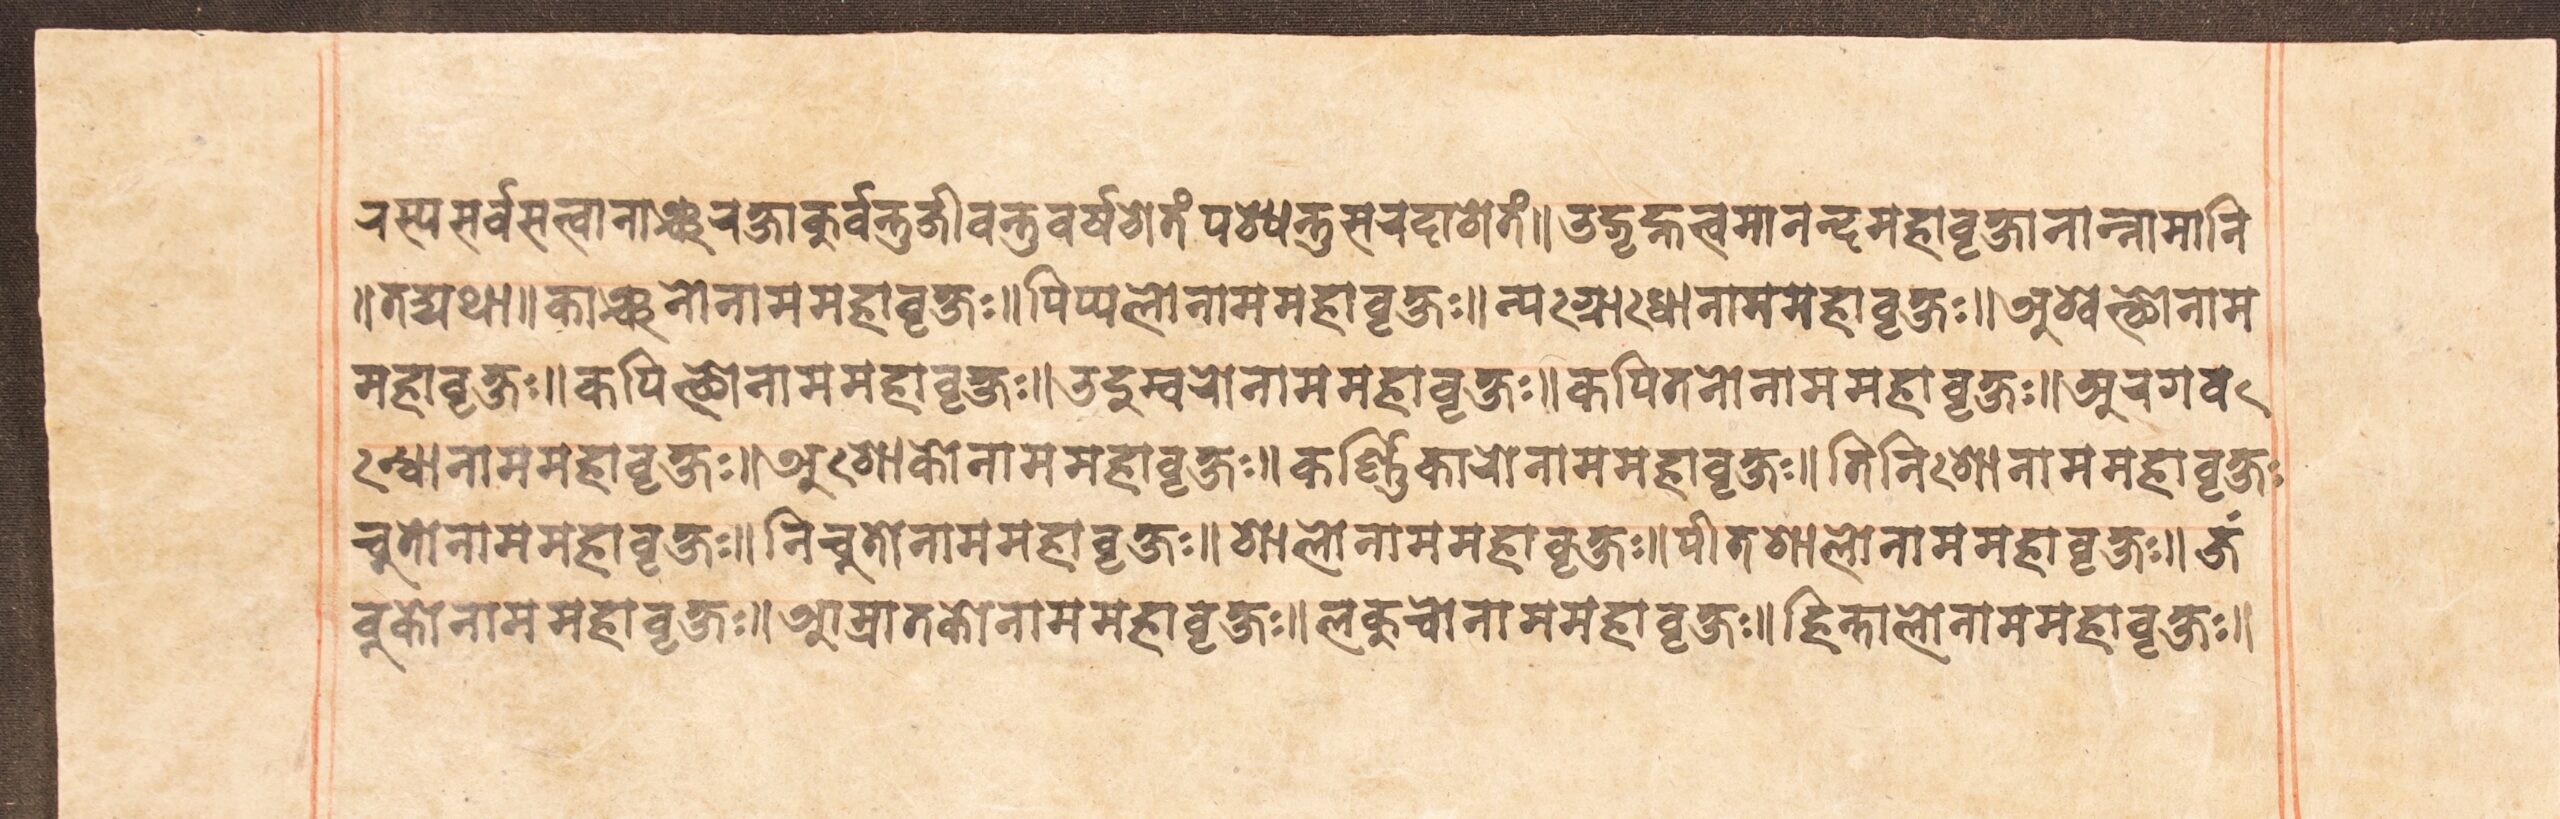 रस्य सर्वसत्वानाञ्च रक्षाकुर्वन्तु जीवन्तु वर्षशतं पश्यन्तु सरदाशतं॥ उद्गृह्नत्वमानन्द महावृक्षानान्नामानि
॥ तद्यथा॥ काञ्चनो नाम महावृक्षः॥ पिप्पलो नाम महावृक्षः॥ न्यग्रोधो नाम महावृक्षः॥ अश्वत्थो नाम
महावृक्षः॥ कपित्थो नाम महावृक्षः॥ उदुम्बरो नाम महावृक्षः॥ कपितनो नाम महावृक्षः॥ अरगव
न्धो नाम महावृक्षः॥ अशोको नाम महावृक्षः॥ कर्ण्णिकारो नाम महावृक्षः॥ तिनिशो नाम महावृक्षः
चुतो नाम महावृक्षः॥ निचुतो नाम महावृक्षः॥ शालो नाम महावृक्षः॥ पीतशालो नाम महावृक्षः॥ जं
बुको नाम महावृक्षः॥ आम्रातको नाम महावृक्षः॥ लकुचो नाम महावृक्षः॥ हिन्तालो नाम महावृक्षः॥